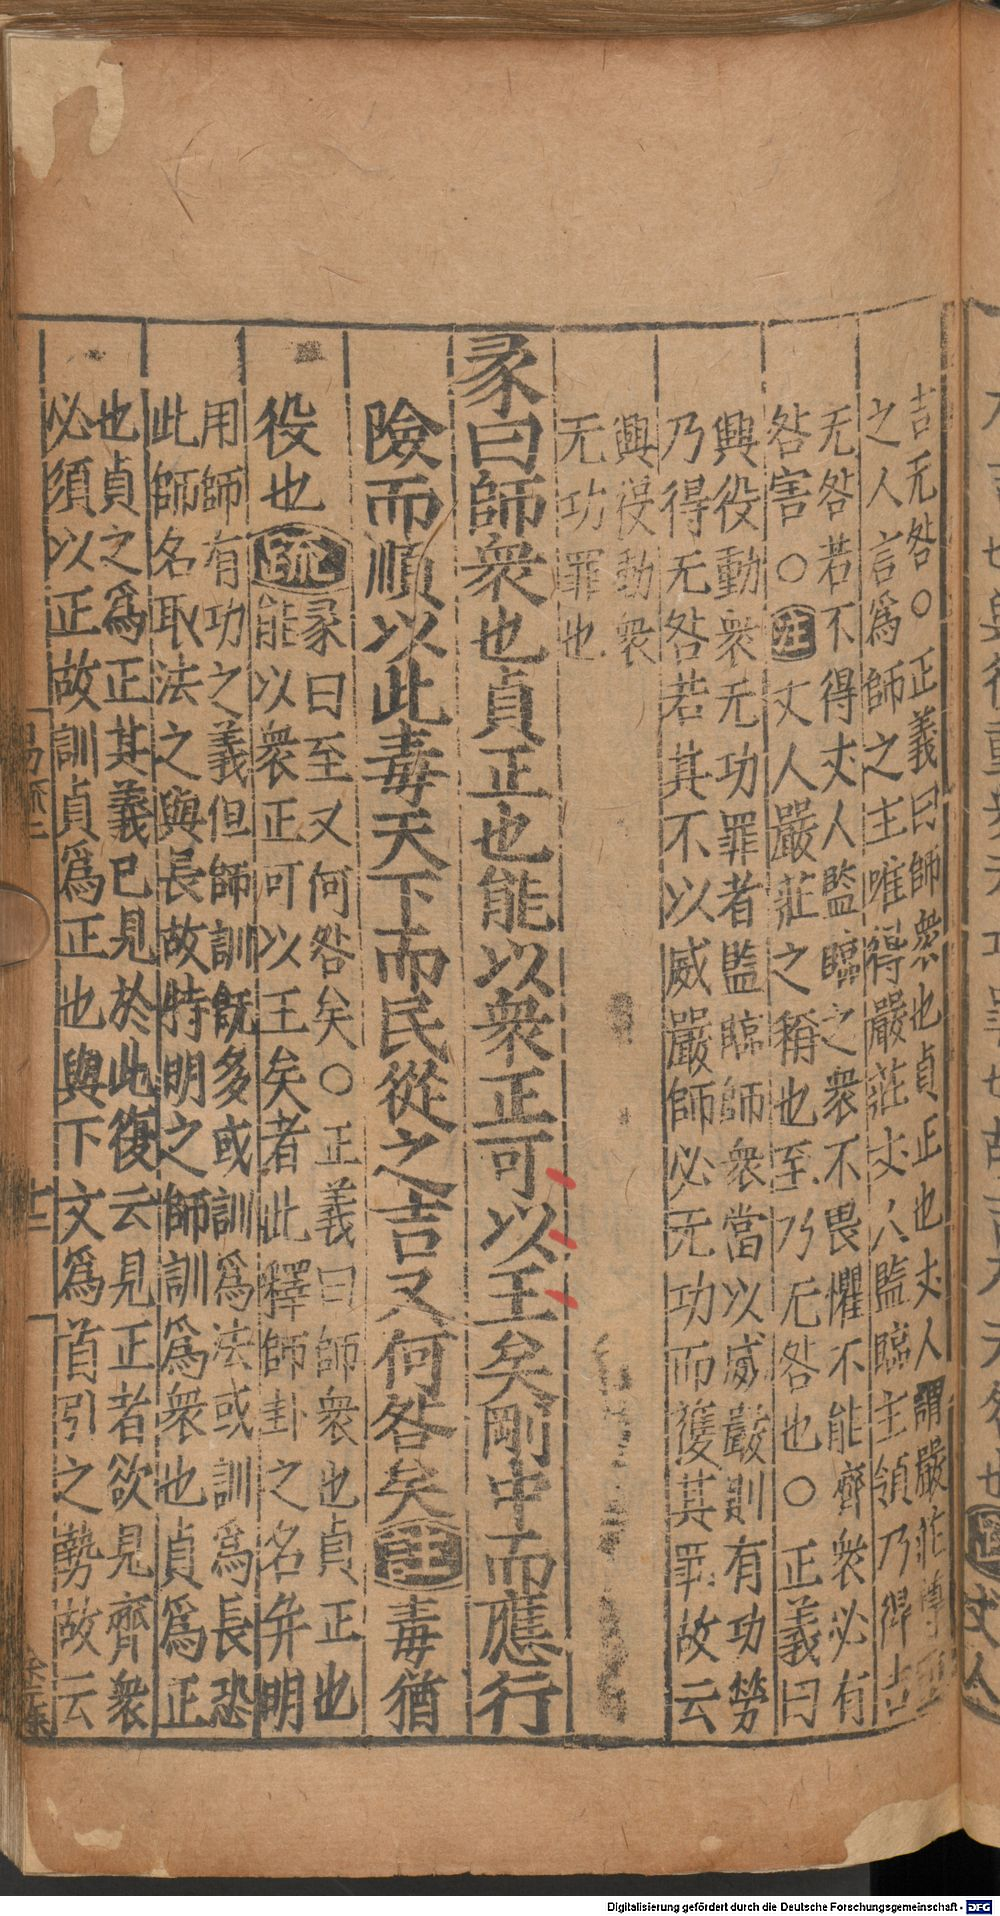 吉无咎○正義曰師衆也貞正也丈人謂嚴莊尊重
之人言爲師之主唯得嚴莊丈人監臨主領乃得吉
无咎若不得丈人監臨之衆不畏懼不能齊衆必有
咎害○注丈人嚴莊之稱也至乃无咎也○正義曰
興役動衆无功罪者監臨師衆當以威嚴則有功勞
乃得无咎若其不以威嚴師必无功而獲其罪故云
興役動衆
无功罪也
彖曰師衆也貞正也能以衆正可以王矣剛中而應行
險而順以此毒天下而民從之吉又何咎矣注毒猶
役也疏
彖曰至又何咎矣○正義曰師衆也貞正也
能以衆正可以王矣者此釋師卦之名并明
用師有功之義但師訓旣多或訓爲法或訓爲長恐
此師名取法之與長故特明之師訓爲衆也貞爲正
也貞之爲正其義已見於此復云見正者欲見齊衆
必須以正故訓貞爲正也與下文爲首引之勢故云
易疏二
十二
Digitalisierung gefördert durch die Deutsche Forschungsgemeinschaft - DFG